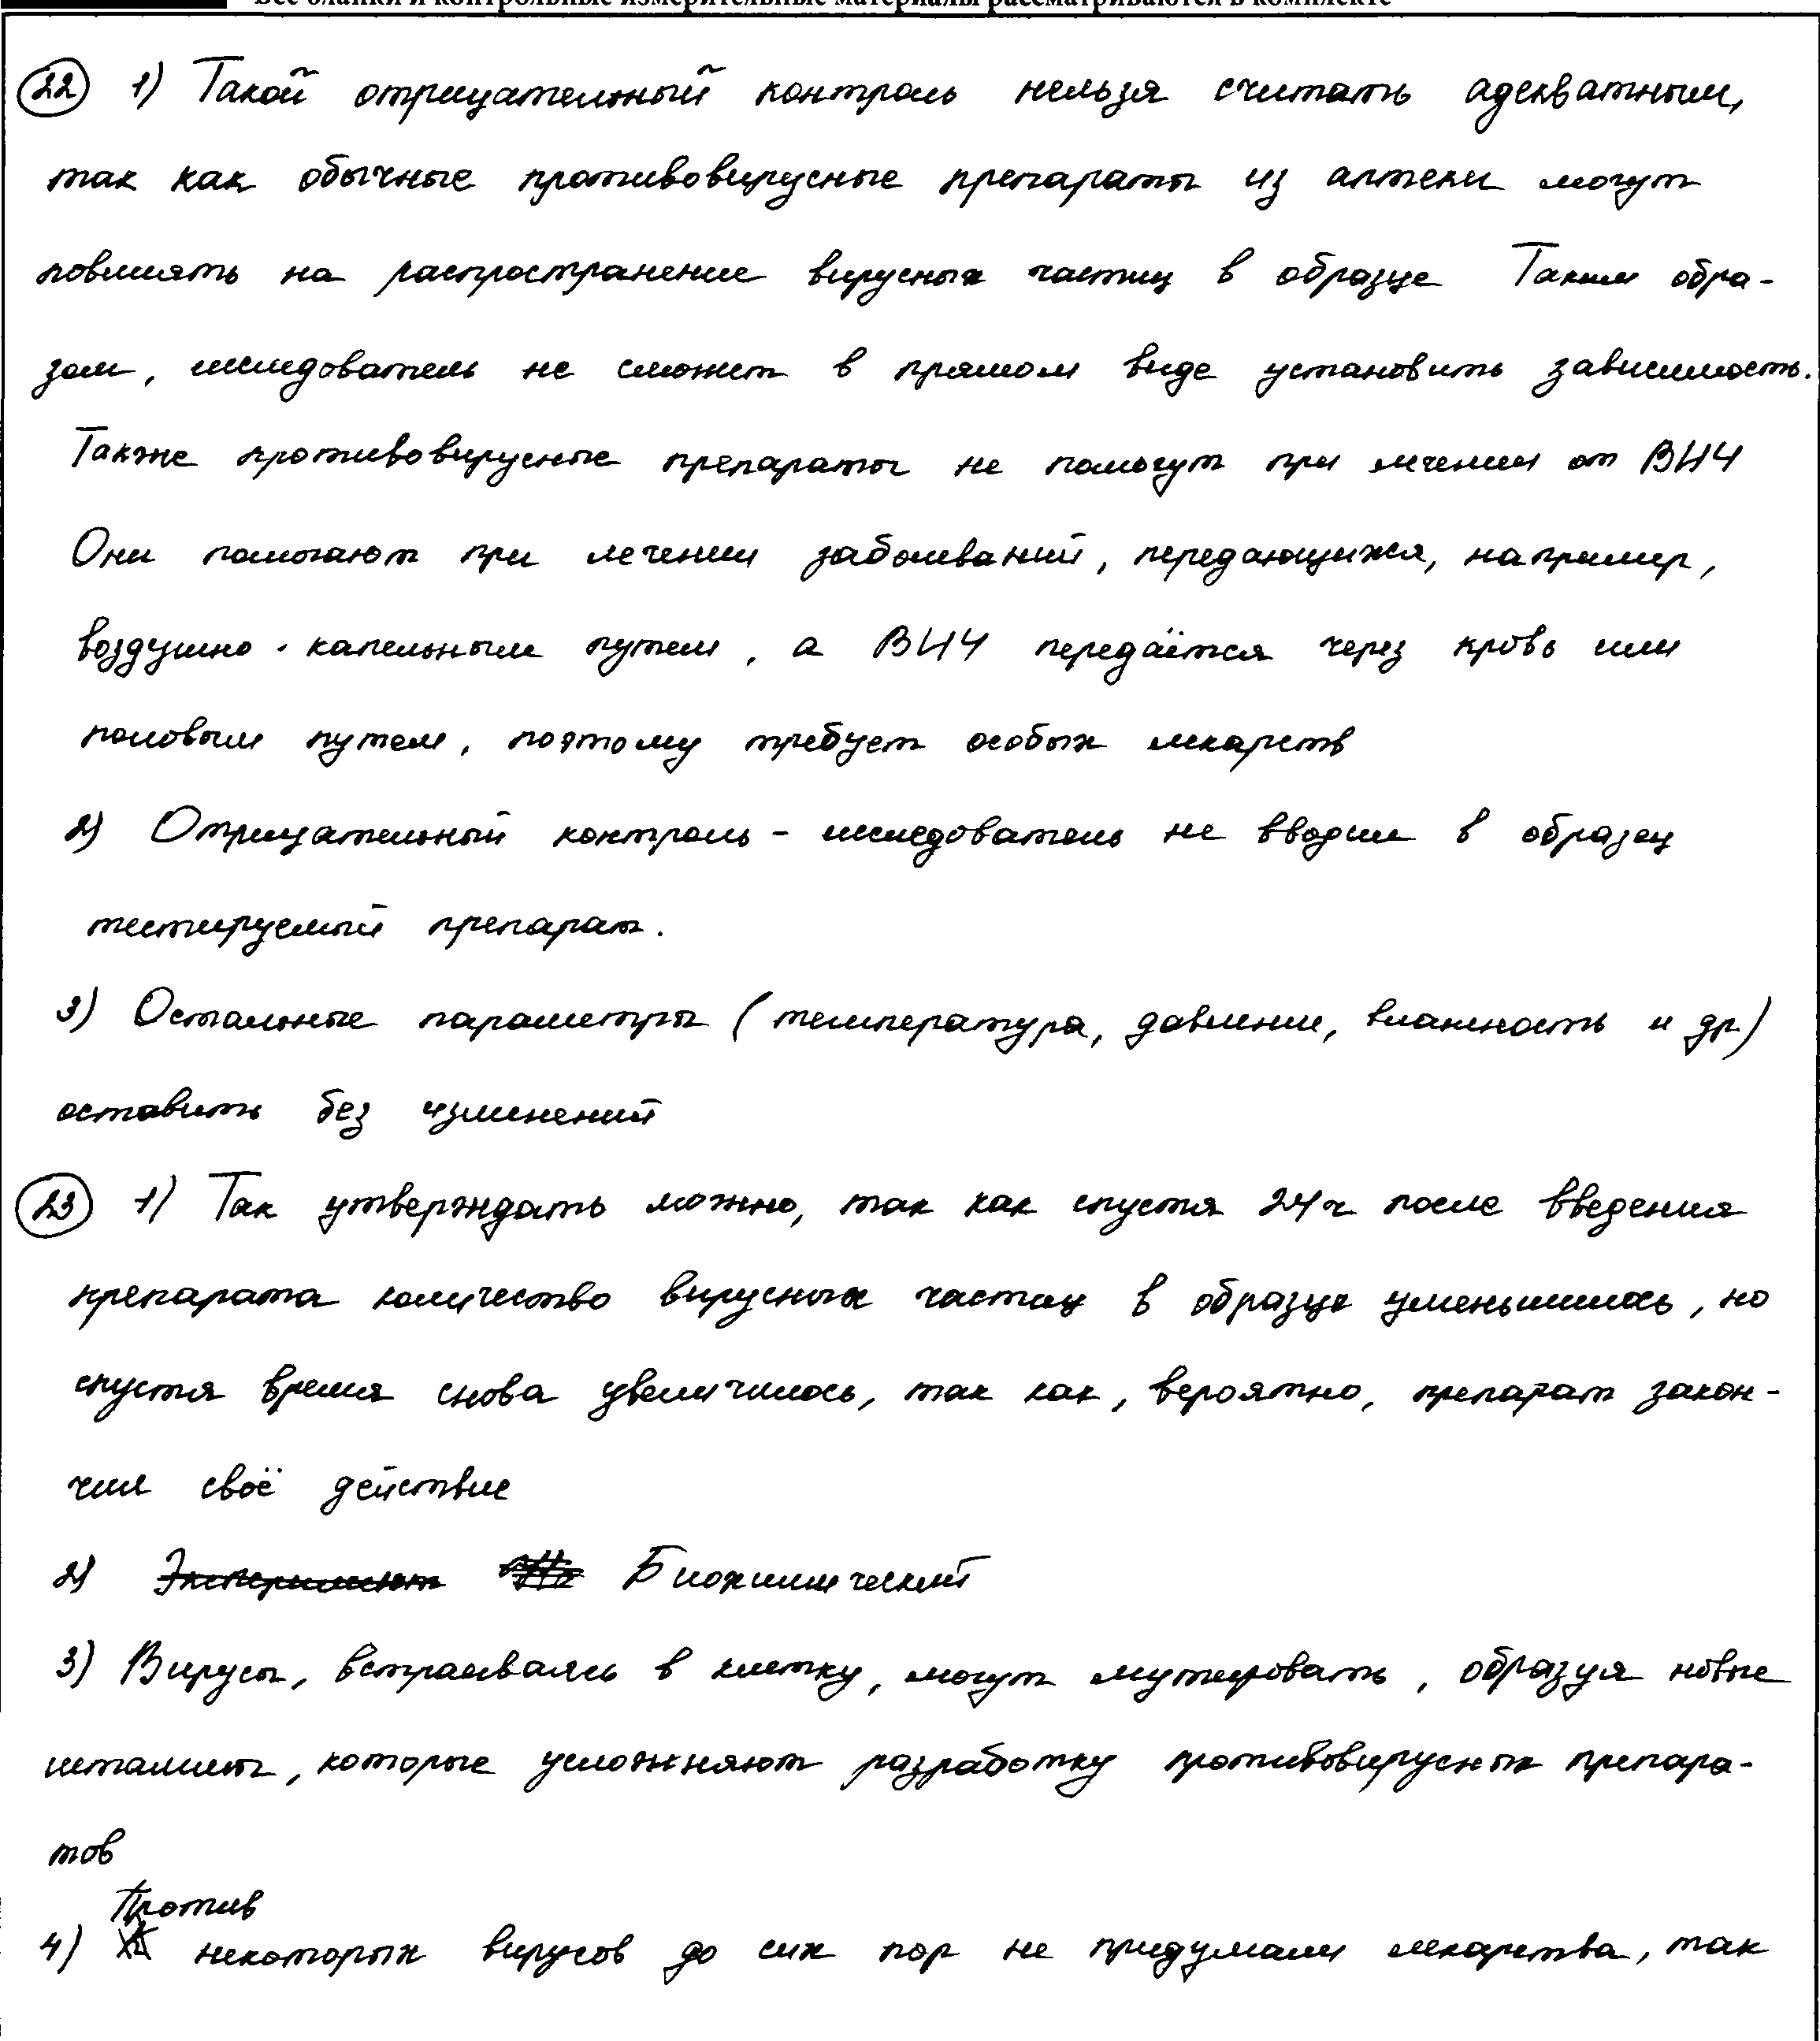 Все бланки и контрольные измерительные материалы рассматриваются в комплекте
22 1) Такой отрицательный контроль нельзя считать адекватным,
так как обычные противовирусные препараты из аптеки могут
повлиять на распространение вирусных частиц в образце Таким обра-
зом, исследователь не сможет в прямом виде установить зависимость.
Также противовирусные препараты не помогут при лечении от ВИЧ
Они помогают при лечении заболеваний, передающихся, например,
воздушно-капельным путем, а ВИЧ передаётся через кровь или
половым путем, поэтому требует особых лекарств
2) Отрицательный контроль - исследователь не вводил в образец
тестируемый препарат.
3) Остальные параметры (температура, давление, влажность и др)
оставить без изменений
23 1) Так утверждать можно, так как спустя 24ч после введения
препарата количество вирусных частиц в образце уменьшилось, но
спустя время снова увеличилось, так как, вероятно, препарат закон-
чил своё действие
2) Биохимический
3) Вирусы, встраиваясь в клетку, могут мутировать, образуя новые
штаммы, которые усложняют разработку противовирусных препара-
тов
4) Против некоторых вирусов до сих пор не придумали лекарства, так